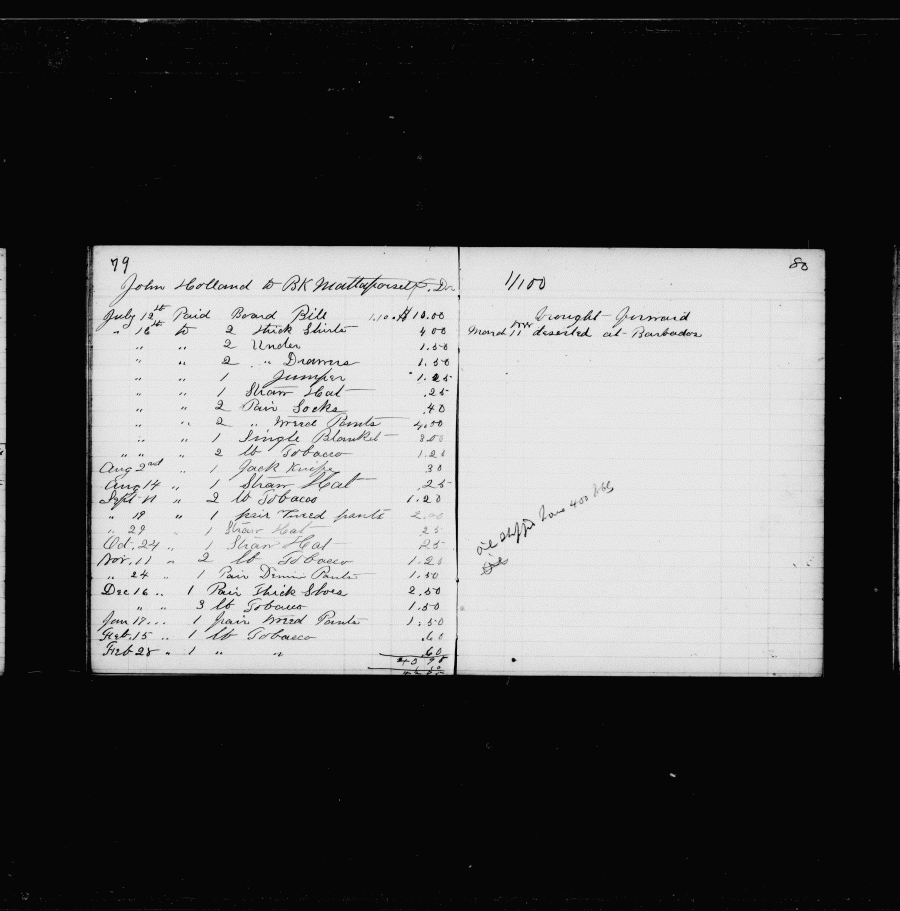 79
John Holland to BK Mattapoisett Dr
July 12th Paid Board Bill 1.10 $10.00
" 16th to 2 thick Shirts 4 00
" " 2 Under 1.50
" " 2 " Drawers 1.50
" " 1 Jumper 1.25
" " 1 Straw Hat .25
" " 2 Pair Socks .40
" " 2 " Tweed Pants 4.00
" " 1 Single Blanket 3 00
" " 2 lb Tobacco 1.20
Aug 2nd " 1 Jack Knife 30
Aug 14 " 1 Straw Hat .25
Sept 11 " 2 lb Tobacco 1.20
" 19 " 1 pair Tweed pants 2.00
" 29 1 Straw Hat 25
Oct. 24 " 1 Straw Hat 25
Nov. 11 " 2 lb Tobacco 1.20
" 24 " 1 Pair Denim Pants 1.50
Dec 16 " 1 Pair Thick Shoes 2.50
" " 3 lb Tobacco 1.50
Jan 17 " 1 pair Tweed Pants 1.50
Feb. 15 " 1 lb Tobacco .60
Feb 28 " 1 " " .60
80
1/100
brought forward
March 11 deserted at Barbados
oil shipped 400 bbls